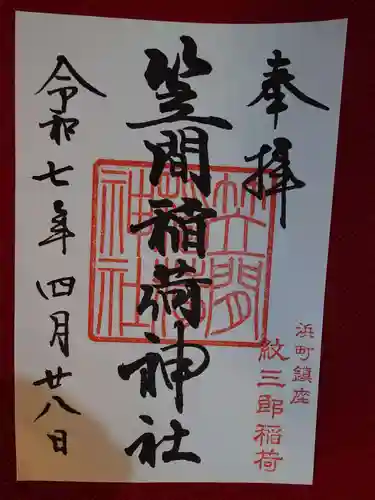 奉拝
笠間稲荷神社
令和七年四月廿八日
笠間稲荷神社
浜町鎮座
紋三郎稲荷